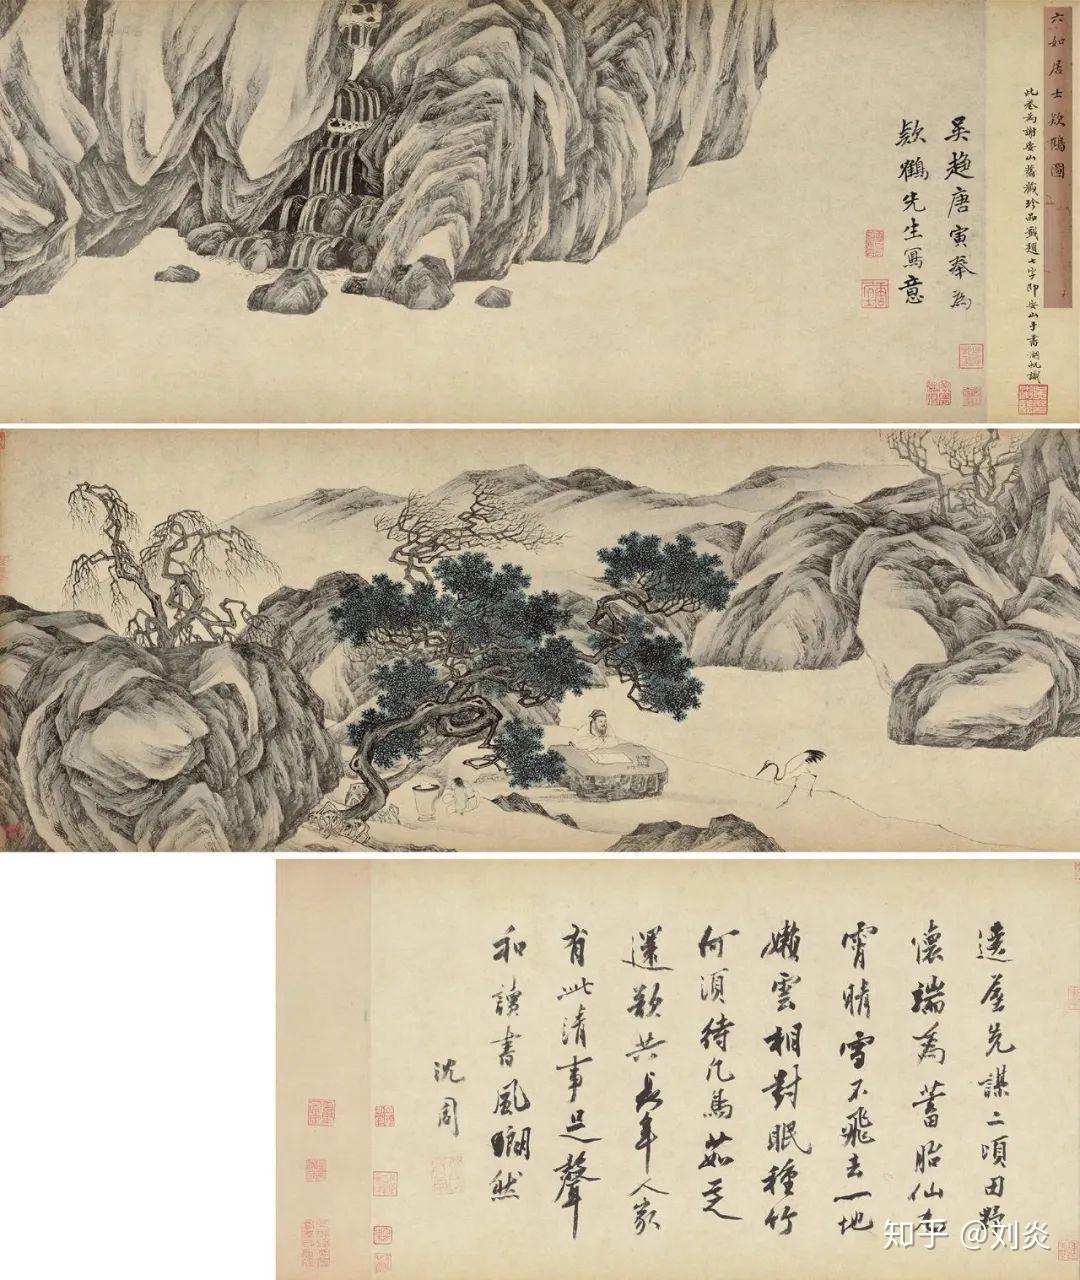 六如居士欵鶴圖
此卷為謝安山舊藏珍品籤題七字即安山手書湖帆識
吳趨唐寅奉為
欵鶴先生寫意
遶屋先謀二頃田野
懷端為蓄胎仙
霄晴雪不飛去一地
嫩雲相對眠種竹
何須待凡鳥茹芝
還歎共長年人家
有此清事足聲
和讀書風瑯然
沈周
知乎 @刘炎